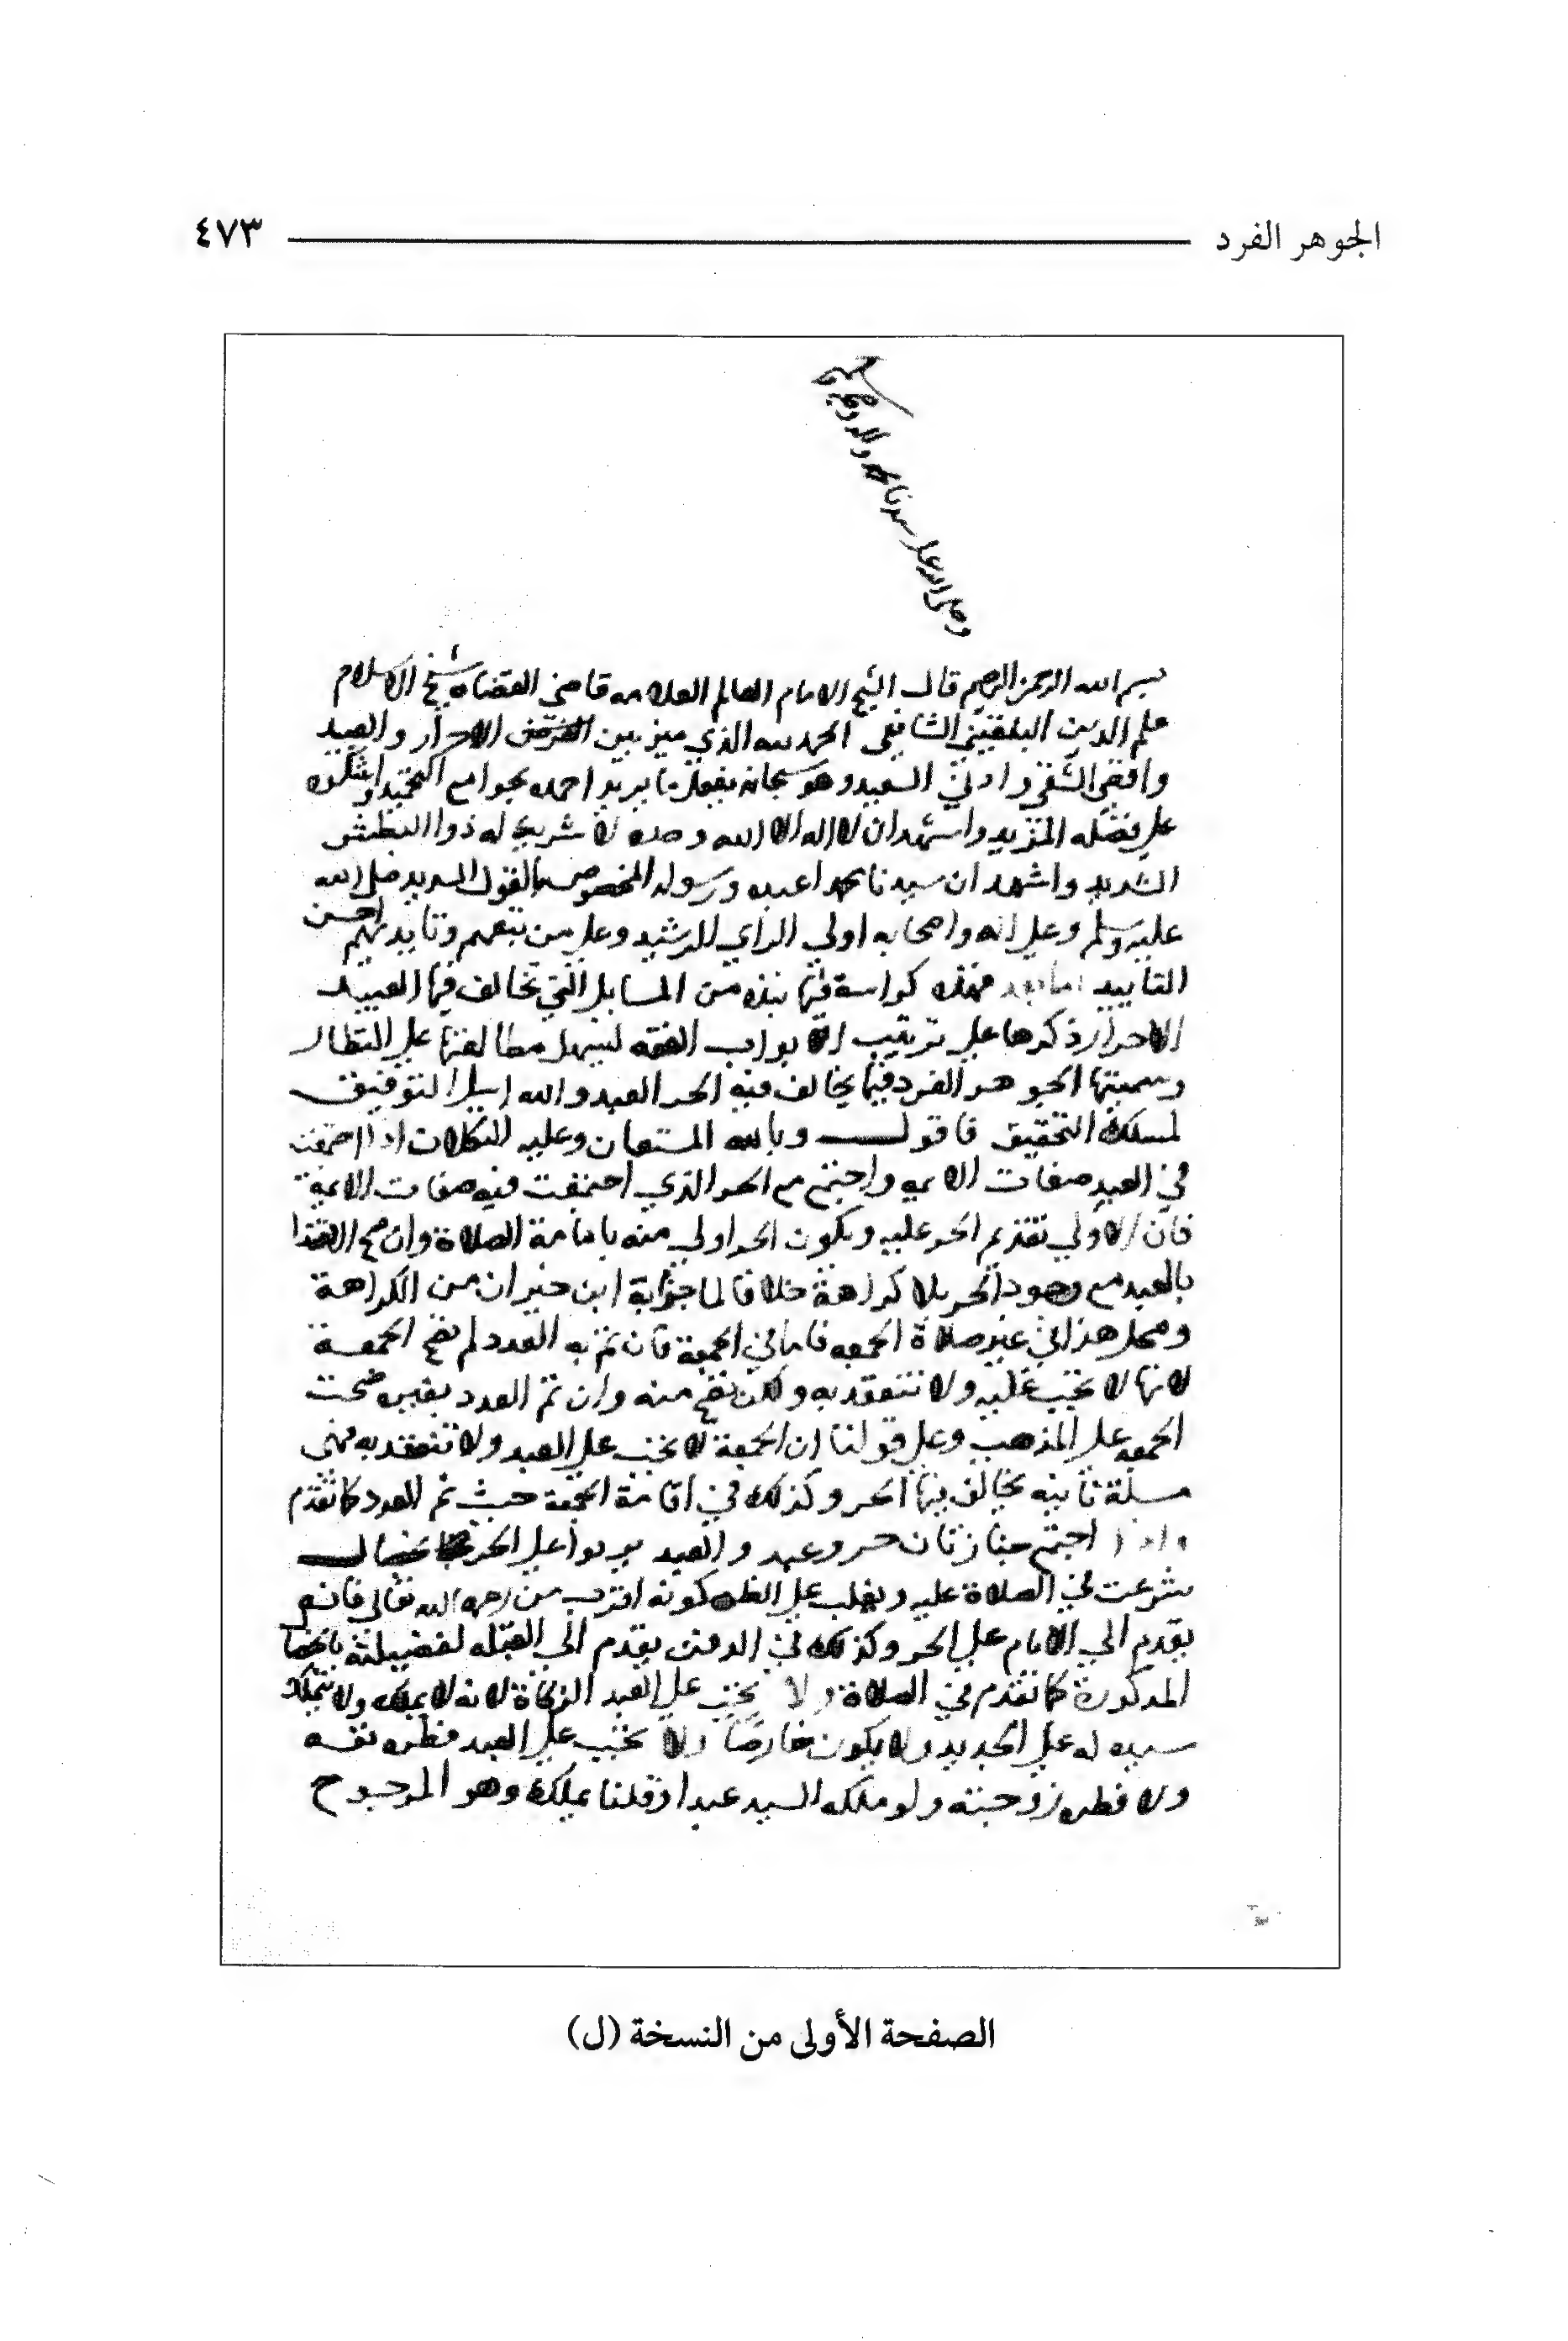 الجوهر الفرد ٤٧٣
بسم الله الرحمن الرحيم قال الشيخ الامام العالم العلامه قاضي القضاة شيخ الاسلام
علم الدين البلقيني الشافعي الحمد لله الذي ميز بين الاحرار والعبيد
واقصى الشقي وادنى السعيد وهو سبحانه يفعل ما يريد احمده بجوامع التحميد واشكره
على فضله المزيد واشهد ان لا اله الا الله وحده لا شريك له ذوا البطش
الشديد واشهد ان سيدنا محمدا عبده ورسوله المخصوص بالقول السديد صلى الله
عليه وسلم وعلى اله واصحابه اولي الراي الرشيد وعلى من تبعهم احسن
التاييد اما بعد فهذه كراسة فيها نبذه من المسايل التي تخالف فيها العبيد
الاحرار ذكرها على ترتيب الابواب الفقه ليسهل مطالعتها على النظار
وسميتها الجوهر الفرد فيما يخالف فيه الحر العبد والله اسيل التوفيق
لمسلك التحقيق فاقول وبالله المستعان وعليه التكلان اذا اجتمعت
في العبد صفات الايمه واجتمع مع الحر الذي اجتمعت فيه صفات الايمة
فان الاولي تقديم الحر عليه ويكون الحر اولي منه بامامة الصلاة وان صح الاقتدا
بالعبد مع وجود الحر بلا كراهة خلافا لما ابن خيران من الكراهة
ومحل هذا في غير صلاة الجمعه فاما في الجمعة فان تم به العدد لم تصح الجمعة
لانها لا تجب عليه ولا تنعقد به ولكن تصح منه وان تم العدد بغيره صحت
الجمعه على المذهب وعلى قولنا ان الجمعة لا تجب على العبد ولا تنعقد به فهي
مسلة ثانيه يخالف فيها الحر وكذلك في اقامة الجمعة حيث تم العدد كما تقدم
واذا اجتمع جنازتان حر وعبد والعبد على الحر
شرعت في الصلاة عليه ويغلب على الظن كونه اقرب من رحمه الله تعالى فانه
يقدم الي الامام على الحر وكذلك في الدفن يقدم الى القبله لفضيلته
المذكورة كما تقدم في الصلاة ولا تجب على العبد الزكاة لانه لا يملك ولا بتمليك
سيده له على الجديد ولا يكون ولا تجب على العبد فطره نفسه
ولا فطره زوجته ولو ملكه السيد عبدا وقلنا يملكه وهو المرجوح
الصفحة الأولى من النسخة (ل)